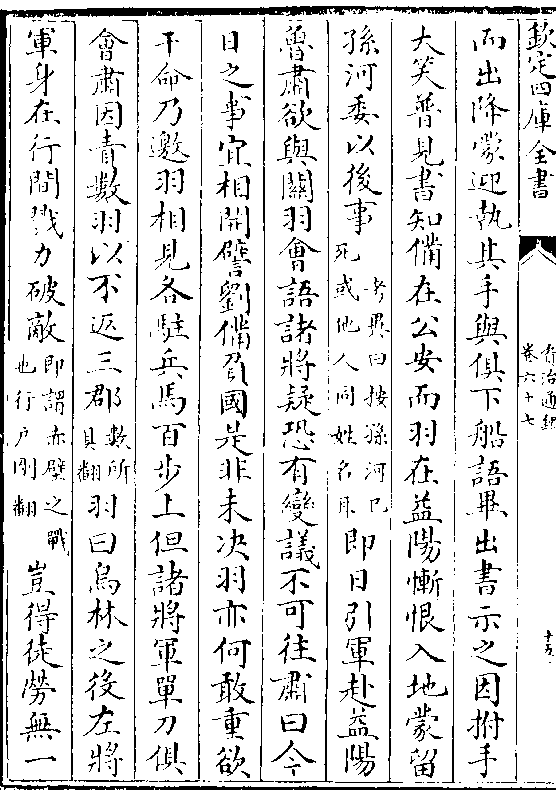 欽定四庫全書
資治通鑑
卷六十七
十五
而出降蒙迎執其手與俱下船語畢出書示之因拊手
大笑普見書知備在公安而羽在益陽慚恨入地蒙留
孫河委以後事考異曰按孫河已死或他人同姓名耳即日引軍赴益陽
魯肅欲與關羽會語諸將疑恐有變議不可往肅曰今
日之事宜相開譬劉備負國是非未决羽亦何敢重欲
干命乃邀羽相見各駐兵馬百步上但諸將軍單刀俱
會肅因責數羽以不返三郡數所具翻羽曰烏林之役左將
軍身在行間戮力破敵即謂赤壁之戰也行戶剛翻豈得徒勞無一